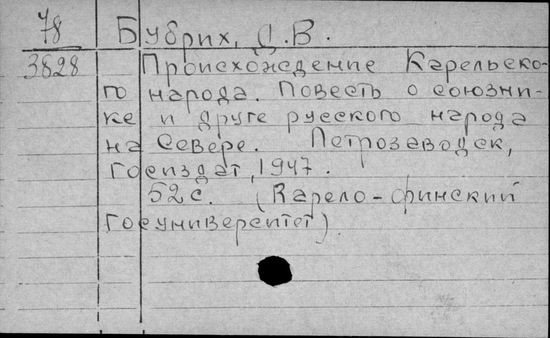 78 Бубрих, Д.В.
3828 Происхождение Карельско-
го народа. Повесть о союзни-
ке и друге русского народа
на Севере. Петрозаводск,
Госиздат, 1947.
52 с. (Карело-финский
Госуниверситет).